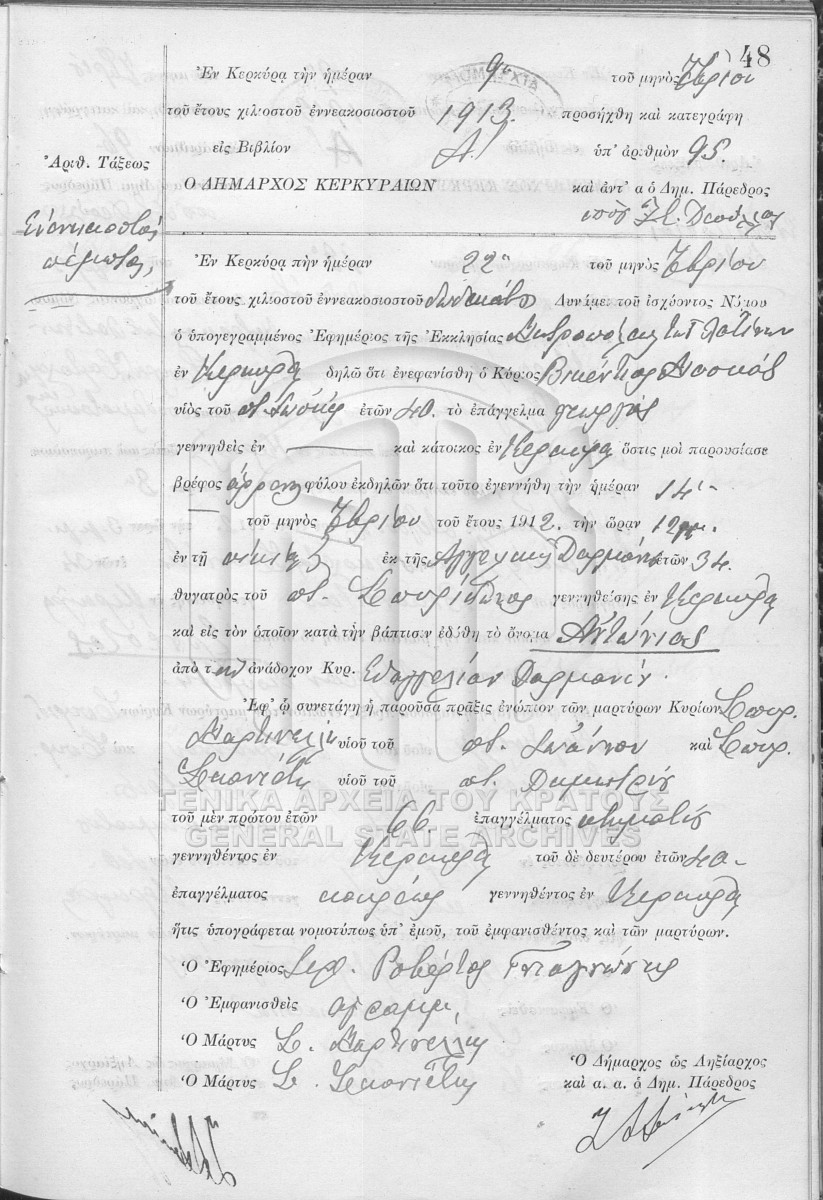 48
Ἐν Κερκύρᾳ τὴν ἡμέραν 9η τοῦ μηνὸς
τοῦ ἔτους χιλιοστοῦ ἐννεακοσιοστοῦ 1913. προσήχθη καὶ κατεγράφη
εἰς Βιβλίον Α! ὑπ' ἀριθμὸν 95.
Ἀριθ. Τάξεως
Ὁ ΔΗΜΑΡΧΟΣ ΚΕΡΚΥΡΑΙΩΝ καὶ ἀντ' α ὁ Δημ. Πάρεδρος
Ἐν Κερκύρᾳ πὴν ἡμέραν 22α τοῦ μηνὸς
τοῦ ἔτους χιλιοστοῦ ἐννεακοσιοστοῦ δωδεκάτου Δυνάμει τοῦ ἰσχύοντος Νόμου
ὁ ὑπογεγραμμένος Ἐφημέριος τῆς Ἐκκλησίας Μητροπόλεως τῶν Λατίνων
ἐν Κερκύρᾳ δηλῶ ὅτι ἐνεφανίσθη ὁ Κύριος Βικέντιος
υἱὸς τοῦ ποτ. Ἰωσὴφ ἐτῶν 40. τὸ ἐπάγγελμα γεωργὸς
γεννηθεὶς ἐν — καὶ κάτοικος ἐν Κερκύρᾳ ὅστις μοὶ παρουσίασε
βρέφος ἄρρεν φύλου ἐκδηλῶν ὅτι τοῦτο ἐγεννήθη τὴν ἡμέραν 14
— τοῦ μηνὸς τοῦ ἔτους 1912. τὴν ὥραν 12
ἐν τῇ οἰκίᾳ ἐκ τῆς Ἀγγελικῆς Δαρμανὶν ἐτῶν 34.
θυγατρὸς τοῦ ποτ. Σπυρίδωνος γεννηθείσης ἐν Κερκύρᾳ
καὶ εἰς τὸν ὁποῖον κατὰ τὴν βάπτισιν ἐδόθη τὸ ὄνομα Ἀντώνιος
ἀπὸ τὴν ἀνάδοχον Κυρ. Εὐαγγελίαν Δαρμανίν.
Ἐφ' ᾧ συνετάγη ἡ παροῦσα πρᾶξις ἐνώπιον τῶν μαρτύρων Κυρίων Σπυρ.
Μαρτινέλλη υἱοῦ τοῦ ποτ. Ἰωάννου καὶ Σπυρ.
υἱοῦ τοῦ ποτ. Δημητρίου
ΓΕΝΙΚΑ ΑΡΧΕΙΑ ΤΟΥ ΚΡΑΤΟΥΣ
GENERAL STATE ARCHIVES
τοῦ μὲν πρώτου ἐτῶν 66. ἐπαγγέλματος κτηματίου
γεννηθέντος ἐν Κερκύρᾳ τοῦ δὲ δευτέρου ἐτῶν 40
ἐπαγγέλματος κουρέως γεννηθέντος ἐν Κερκύρᾳ
ἥτις ὑπογράφεται νομοτύπως ὑπ' ἐμοῦ, τοῦ ἐμφανισθέντος καὶ τῶν μαρτύρων.
Ὁ Ἐφημέριος Ροβέρτος
Ὁ Ἐμφανισθεὶς ἀγράμμ.
Ὁ Μάρτυς Σ. Μαρτινέλλης
Ὁ Μάρτυς Σ.
Ὁ Δήμαρχος ὡς Ληξίαρχος
καὶ α. α. ὁ Δημ. Πάρεδρος